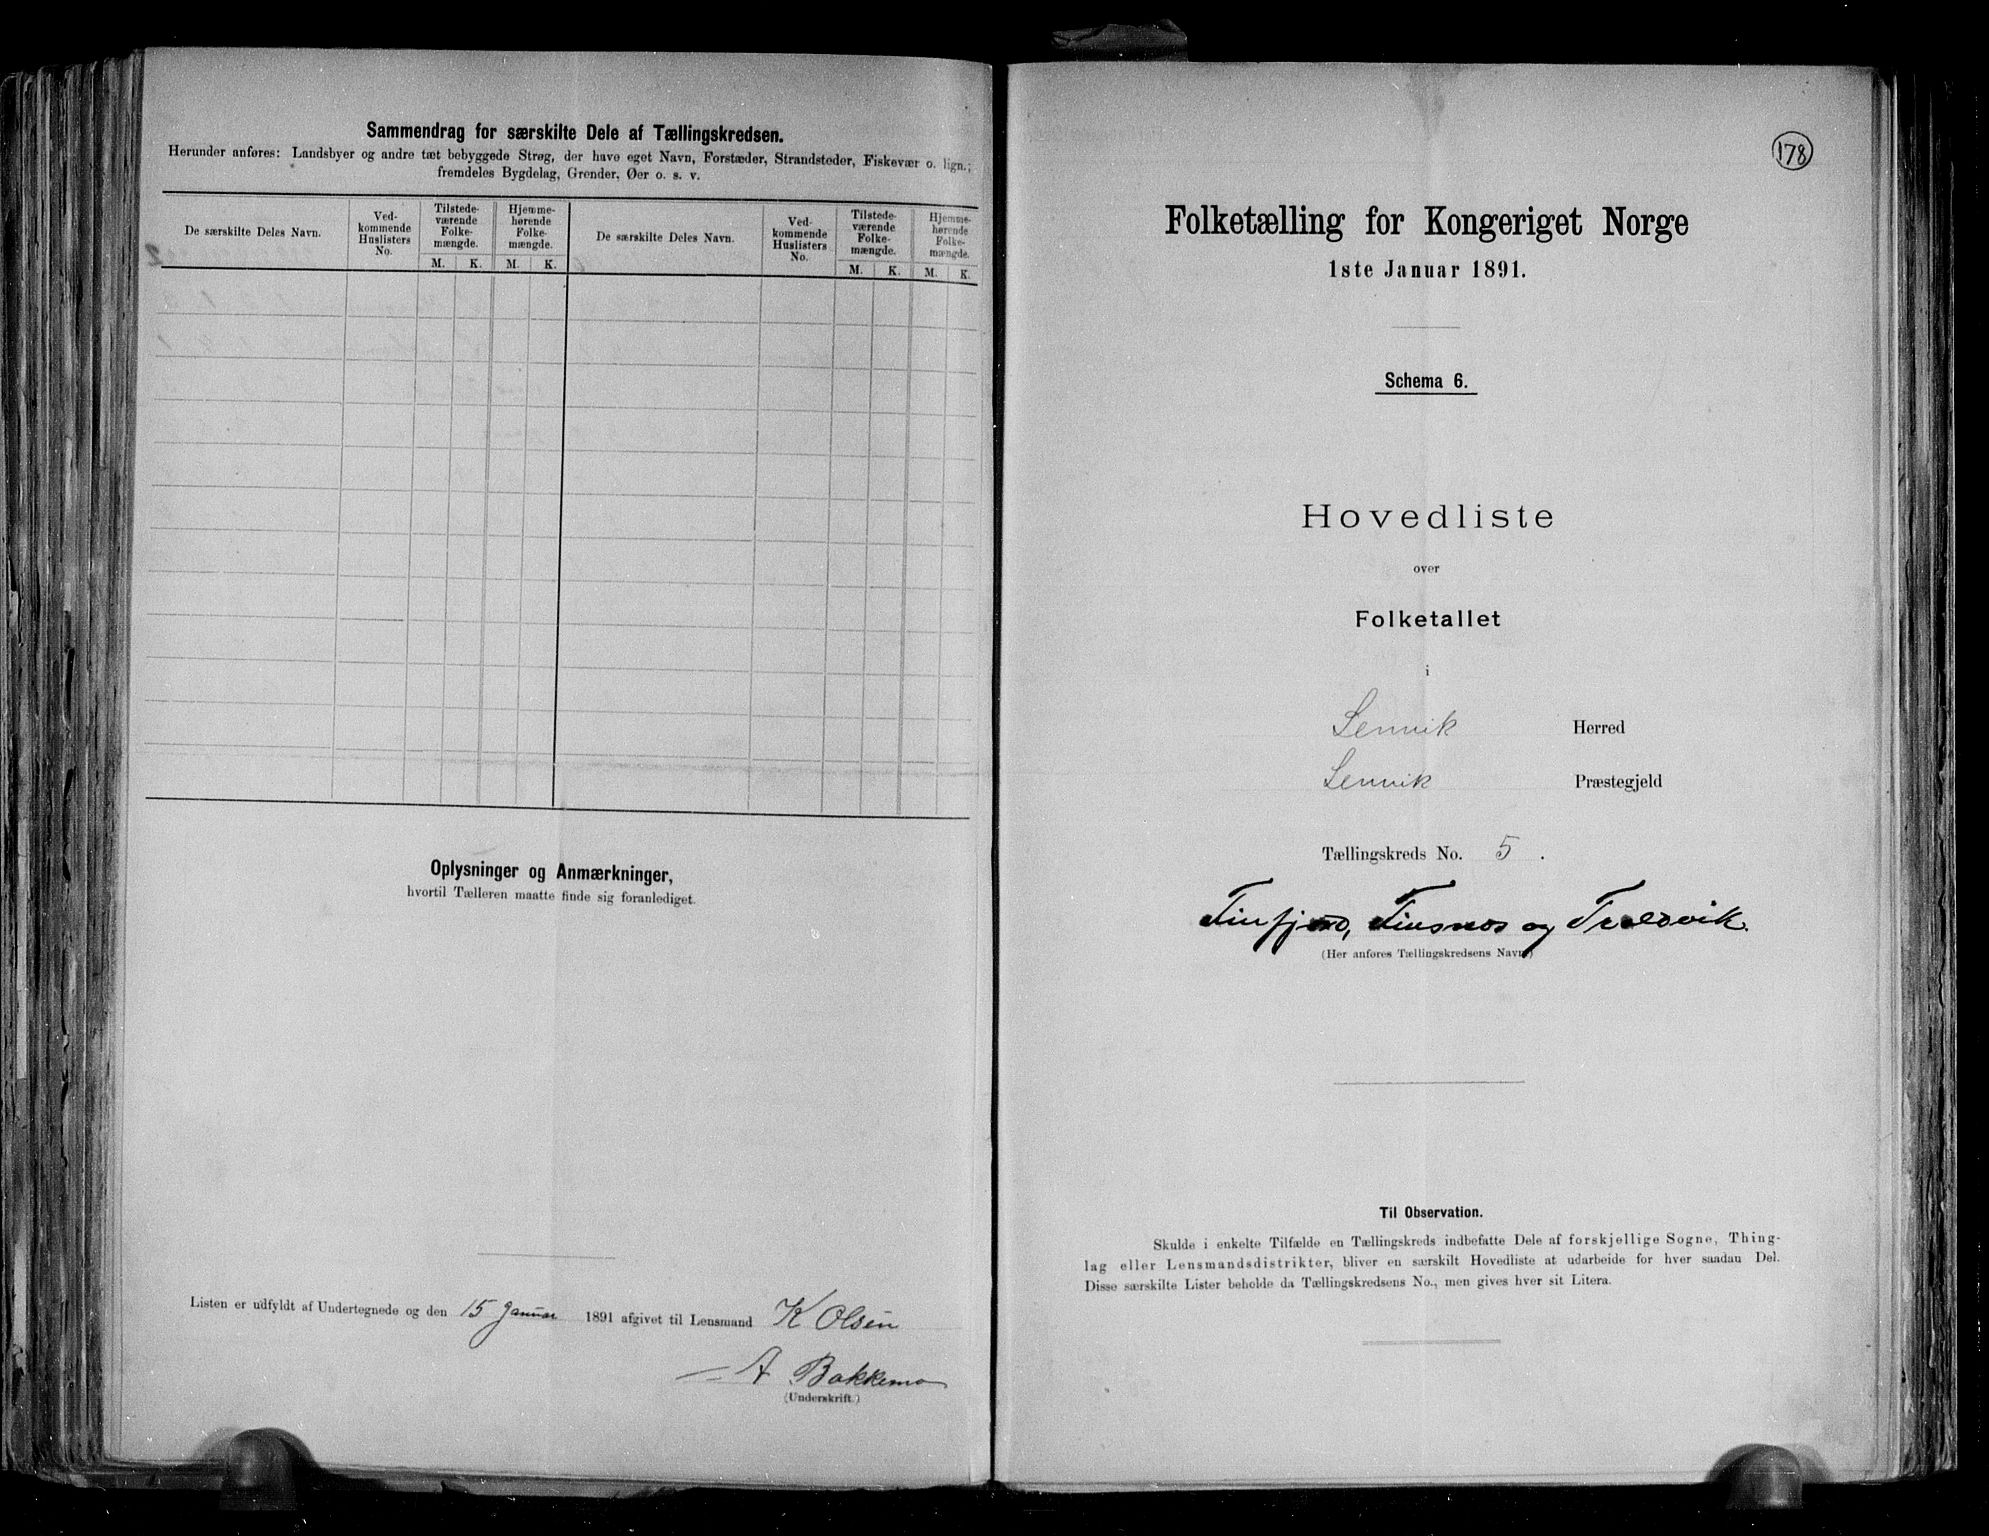 Sammendrag for særskilte Dele af Tællingskredsen.
Herunder anføres: Landsbyer og andre tæt bebyggede Strøg, der have eget Navn, Forstæder, Strandsteder, Fiskevær o. lign.;
fremdeles Bygdelag, Grender, Øer o. s. v.
De særskilte Deles Navn.
Ved-
kommende
Huslisters
No.
Tilstede-
værende
Folke-
mængde.
Hjemme-
hørende
Folke-
mængde.
De særskilte Deles Navn.
Ved-
kommende
Huslisters
No.
Tilstede-
værende
Folke-
mængde.
Hjemme-
hørende
Folke-
mængde.
M. K. M. K. M. K. M. K.
Oplysninger og Anmærkninger,
hvortil Tælleren maatte finde sig foranlediget.
Listen er udfyldt af Undertegnede og den 15 Januar 1891 afgivet til Lensmand K Olsen
A Bakkemo
(Underskrift.)
178
Folketælling for Kongeriget Norge
1ste Januar 1891.
Schema 6.
Hovedliste
over
Folketallet
i
Lenvik Herred
Lenvik Præstegjeld
Tællingskreds No. 5 .
Finfjord, Finsnes og Troldvik.
(Her anføres Tællingskredsens Navn.)
Til Observation.
Skulde i enkelte Tilfælde en Tællingskreds indbefatte Dele af forskjellige Sogne, Thing-
lag eller Lensmandsdistrikter, bliver en særskilt Hovedliste at udarbeide for hver saadan Del.
Disse særskilte Lister beholde da Tællingskredsens No., men gives hver sit Litera.